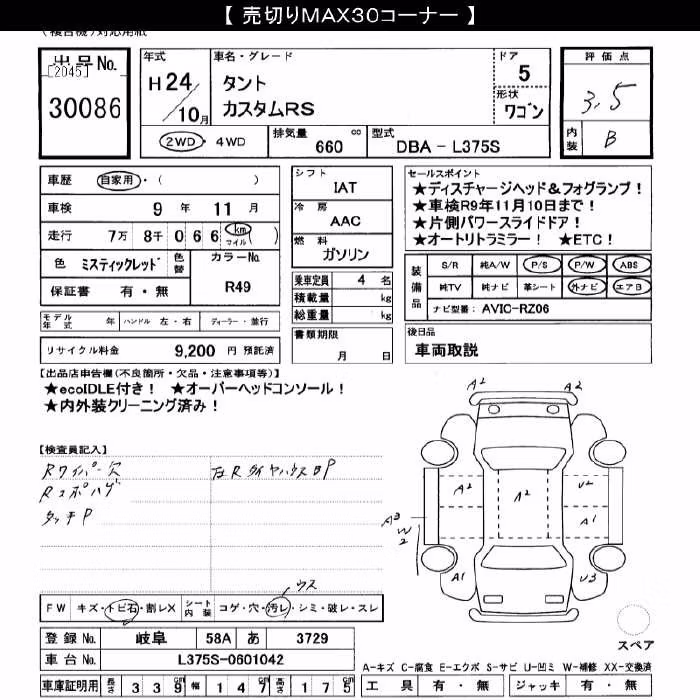 【 売切りMAX30コーナー 】
(複合機)対応用紙
出品No. [2045] 30086
年式 H24/10月
車名・グレード タント カスタムRS
ドア 5
形状 ワゴン
評価点 3.5
内装 B
2WD・4WD 排気量 660 cc 型式 DBA - L375S
車歴 自家用・( )
車検 9 年 11 月
走行 7万 8千 0 6 6 km マイル( )
色 ミスティックレッド 色替 カラーNo. R49
保証書 有・無
モデル年式 年 ハンドル 左・右 ディーラー・並行
リサイクル料金 9,200 円 預託済
シフト IAT
冷房 AAC
燃料 ガソリン
乗車定員 4 名
積載量 kg
総重量 kg
書類期限 月 日
セールスポイント
★ディスチャージヘッド&フォグランプ!
★車検R9年11月10日まで!
★片側パワースライドドア!
★オートリトラミラー! ★ETC!
装備品 S/R 純A/W P/S P/W ABS
純TV 純ナビ 革シート 外ナビ エアB
ナビ型番: AVIC-RZ06
後日品
車両取説
【出品店申告欄(不良箇所・欠品・注意事項等)】
★ecoIDLE付き! ★オーバーヘッドコンソール!
★内外装クリーニング済み!
【検査員記入】
Rワイパー欠
Rスポハゲ
タッチP
左Rタイヤハウス凹P
A2 A2
A2 A2 U2
A3 W2 A1
A1 U3
スペア
FW キズ・トビ石・割レX シート内装 コゲ・穴・汚レ・シミ・破レ・スレ
ウス
登録 No. 岐阜 58A あ 3729
車台 No. L375S-0601042
車庫証明用 長さ 3 3 9 cm 幅 1 4 7 cm 高さ 1 7 5 cm
A-キズ C-腐食 E-エクボ S-サビ U-凹ミ W-補修 XX-交換済
工具 有・無 ジャッキ 有・無